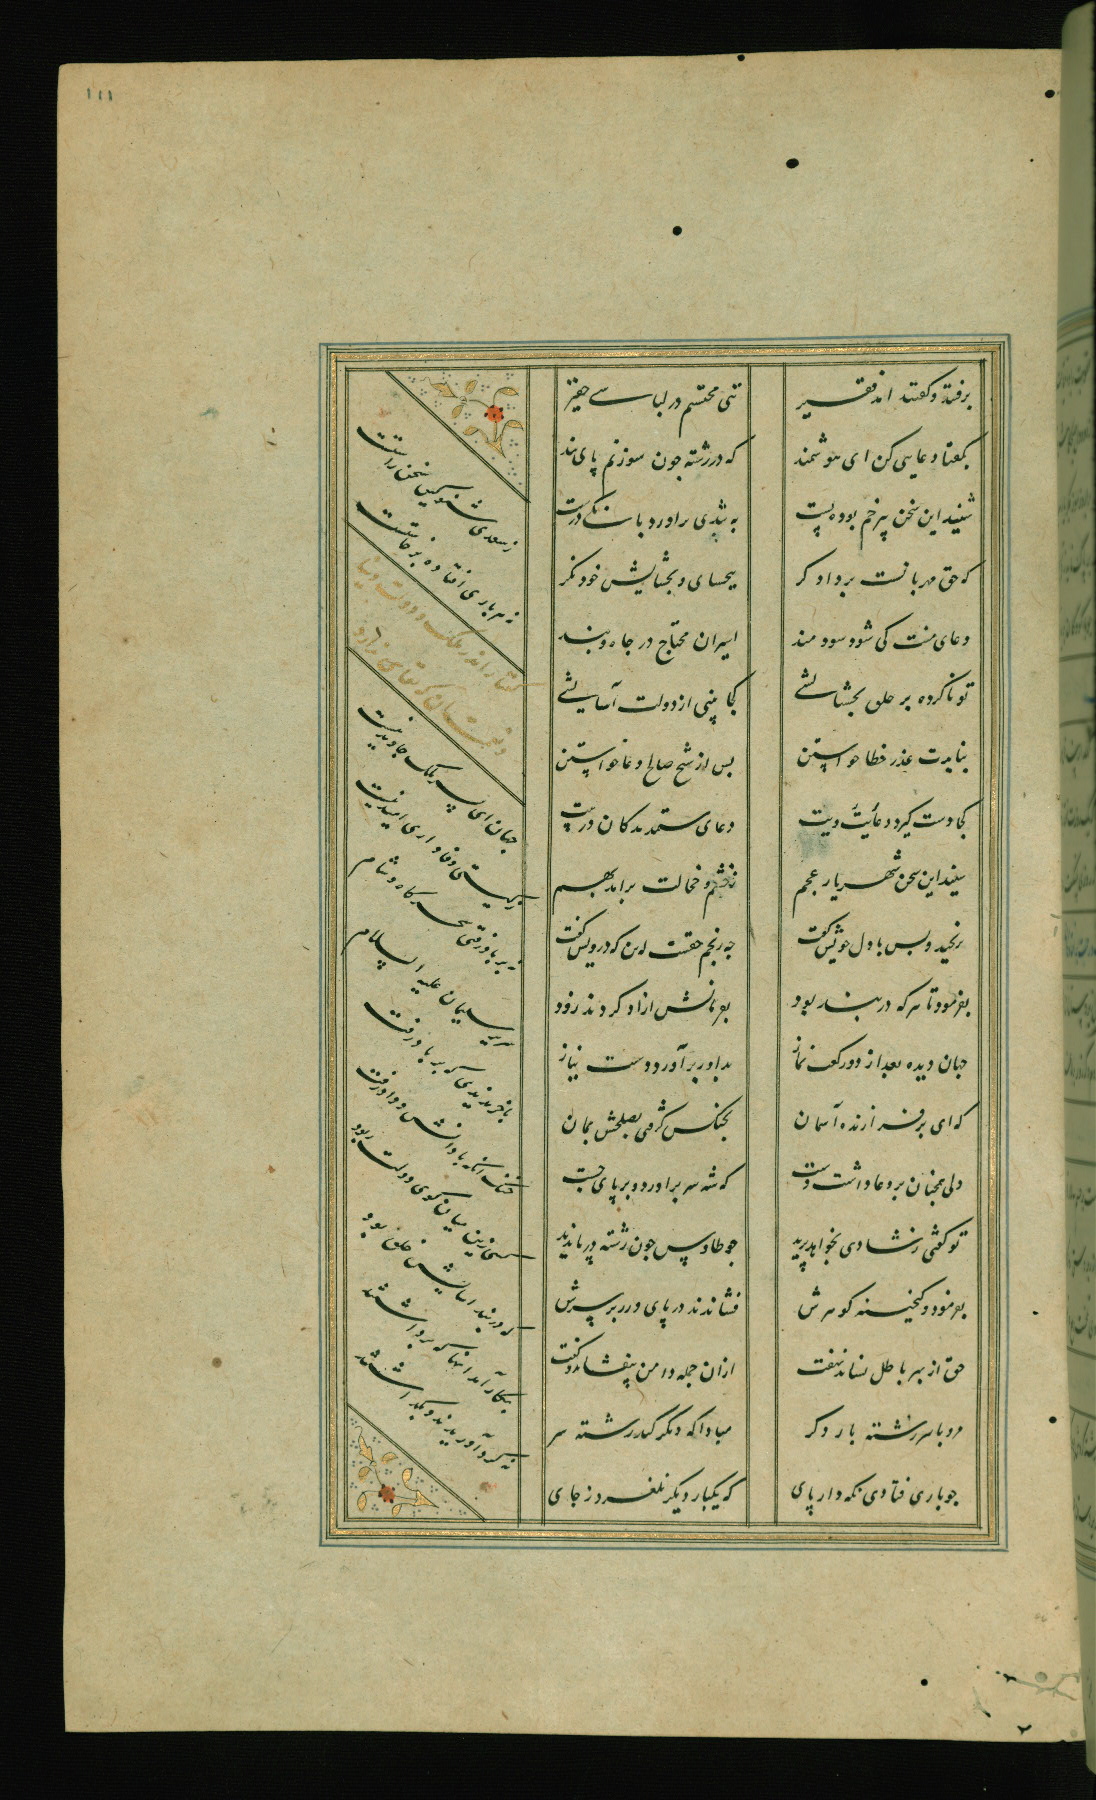 ۱۱۱
برفتند و گفتند آمد فقیر تنی محتشم در لباسی حقیر
بگفتا دعایی کن ای هوشمند که در رشته چون سوزنم پای بند
شنید این سخن پیر خم بوده پشت به تندی براورد بانگی درشت
که حق مهربانست بر دادگر ببخشای و بخشایش حق نگر
دعای منت کی شود سودمند اسیران محتاج در چاه و بند
تو ناکرده بر خلق بخشایشی کجا بینی از دولت آسایشی
ببایدت عذر خطا خواستن پس از شیخ صالح دعا خواستن
کجا دست گیرد دعائیت ویت دعای ستمدیدگان در پیت
شنید این سخن شهریار عجم زخشم و خجالت برآمد بهم
برنجید و پس با دل خویش گفت چه رنجم حقست این که درویش گفت
بفرمود تا هر که در بند بود بفرمانش آزاد کردند زود
جهان دیده بعد از دو رکعت نماز بداور برآورد دست نیاز
که ای برفرازنده آسمان بجنگش گرفتی بصلحش بمان
ولی همچنان بر دعا داشت دست که شه سر براورد و بر پای جست
تو گفتی ز شادی بخواهد پرید چو طاوس چون رشته در پا ندید
بفرمود گنجینه گوهرش فشاندند در پای و زر بر سرش
حق از بهر باطل نشاید نهفت از آن جمله دامن بیفشاند و گفت
مرو با سر رشته بار دگر مبادا که دیگر کند رشته سر
چو باری فتادی نگه دار پای که یکبار دیگر نلغزد ز جای
ز سعدی شنو کین سخن راستست
نه هر باری افتاده برخاستست
گفتار اندر ملک و دولت دنیا
جهان ای پسر ملک جاوید نیست
ز گیتی وفاداری امید نیست
نه بر باد رفتی سحرگاه و شام
سریر سلیمان علیه السلام
بآخر ندیدی که بر باد رفت
خنک آنکه با دانش و داد رفت
کسی زین میان گوی دولت ربود
که در بند آسایش خلق بود
بکار آمد آنها که برداشتند
نه گرد آوریدند و بگذاشتند